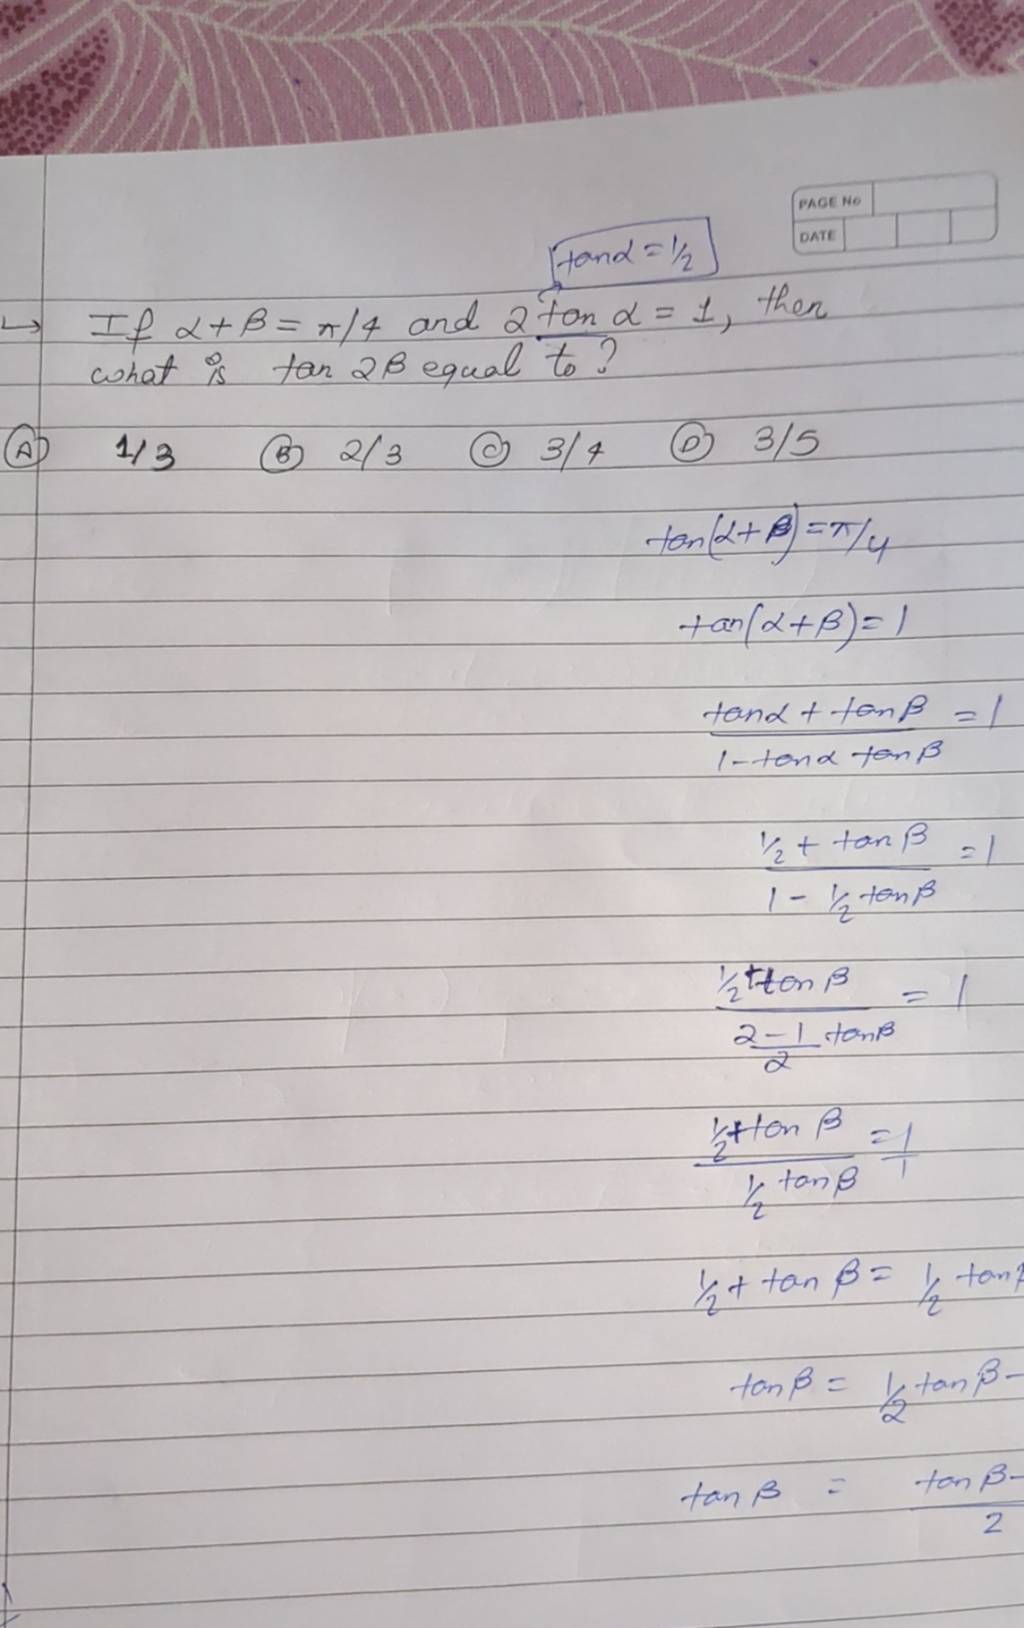 PAGE No
DATE
tanα = 1/2
↳ If α + β = π/4 and 2 tan α = 1, then
what is tan 2β equal to?
Ⓐ 1/3 Ⓑ 2/3 Ⓒ 3/4 Ⓓ 3/5
tan(α + β) = π/4
tan(α + β) = 1
tanα + tanβ = 1
1 - tanα tanβ
1/2 + tan β = 1
1 - 1/2 tanβ
1/2 + tan β = 1
2 - 1 tanβ
2
1/2 + tan β = 1/1
1/2 tanβ
1/2 + tan β = 1/2 tan
tanβ = 1/2 tan β -
tan β = tan β -
2